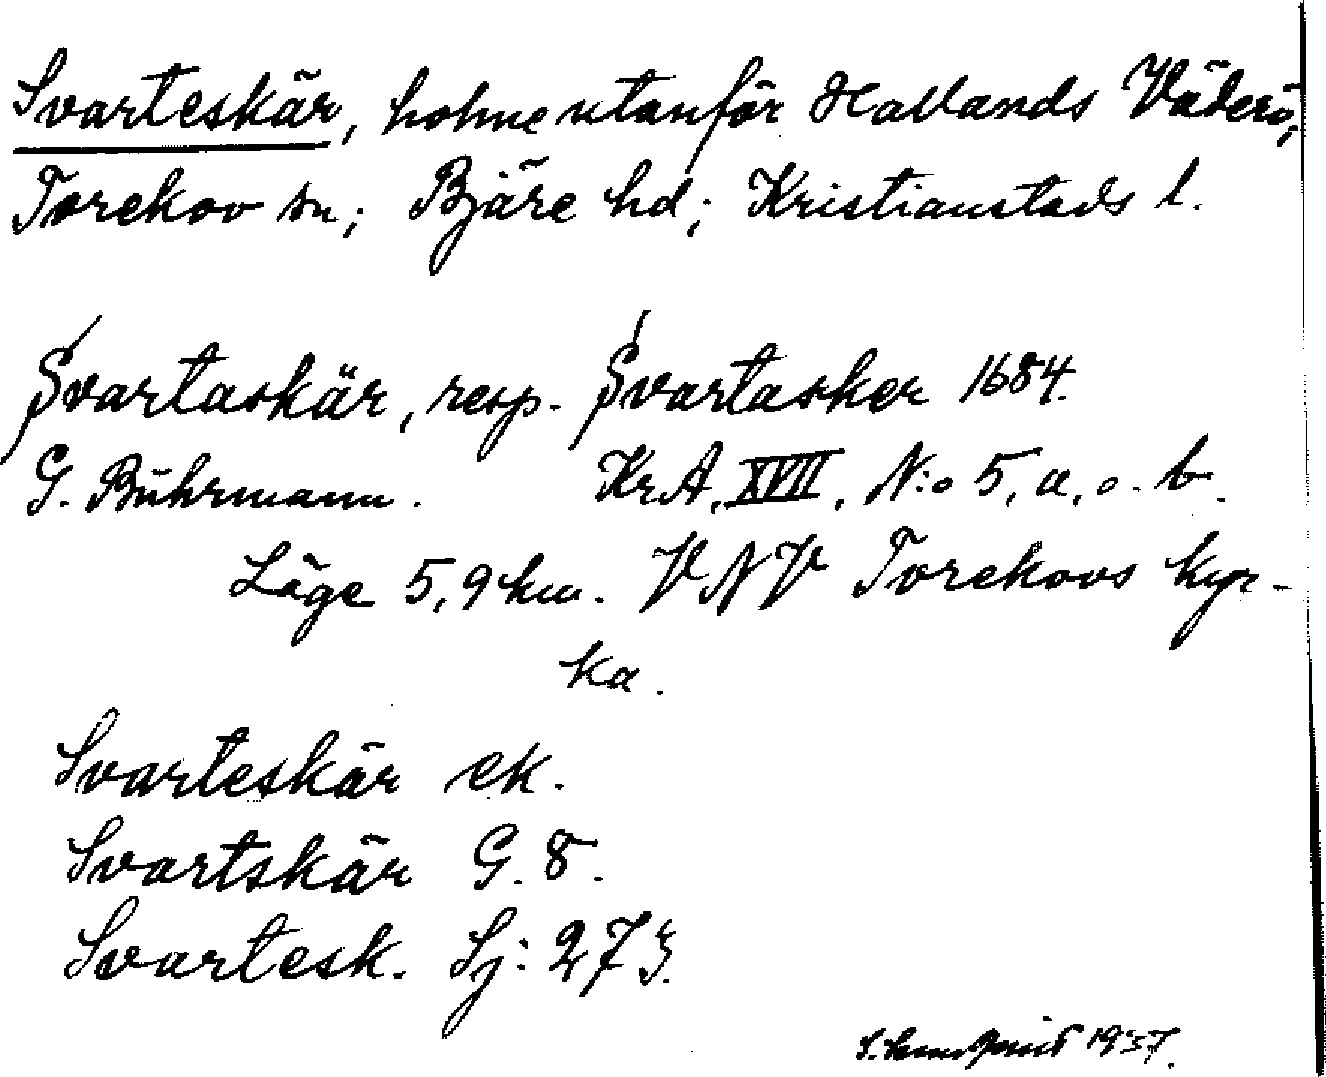 Svarteskär, holme utanför Hallands Väderö,
Torekov sn; Bjäre hd; Kristianstads l.
Svartaskär, resp. Svartasker 1684.
G. Bührmann. KrA, XVII, N:o 5, a, o. b.
Läge 5,9 km. VNV Torekovs kyr-
ka.
Svarteskär ek.
Svartskär G. 8.
Svartesk. Sj: 273.
1937.